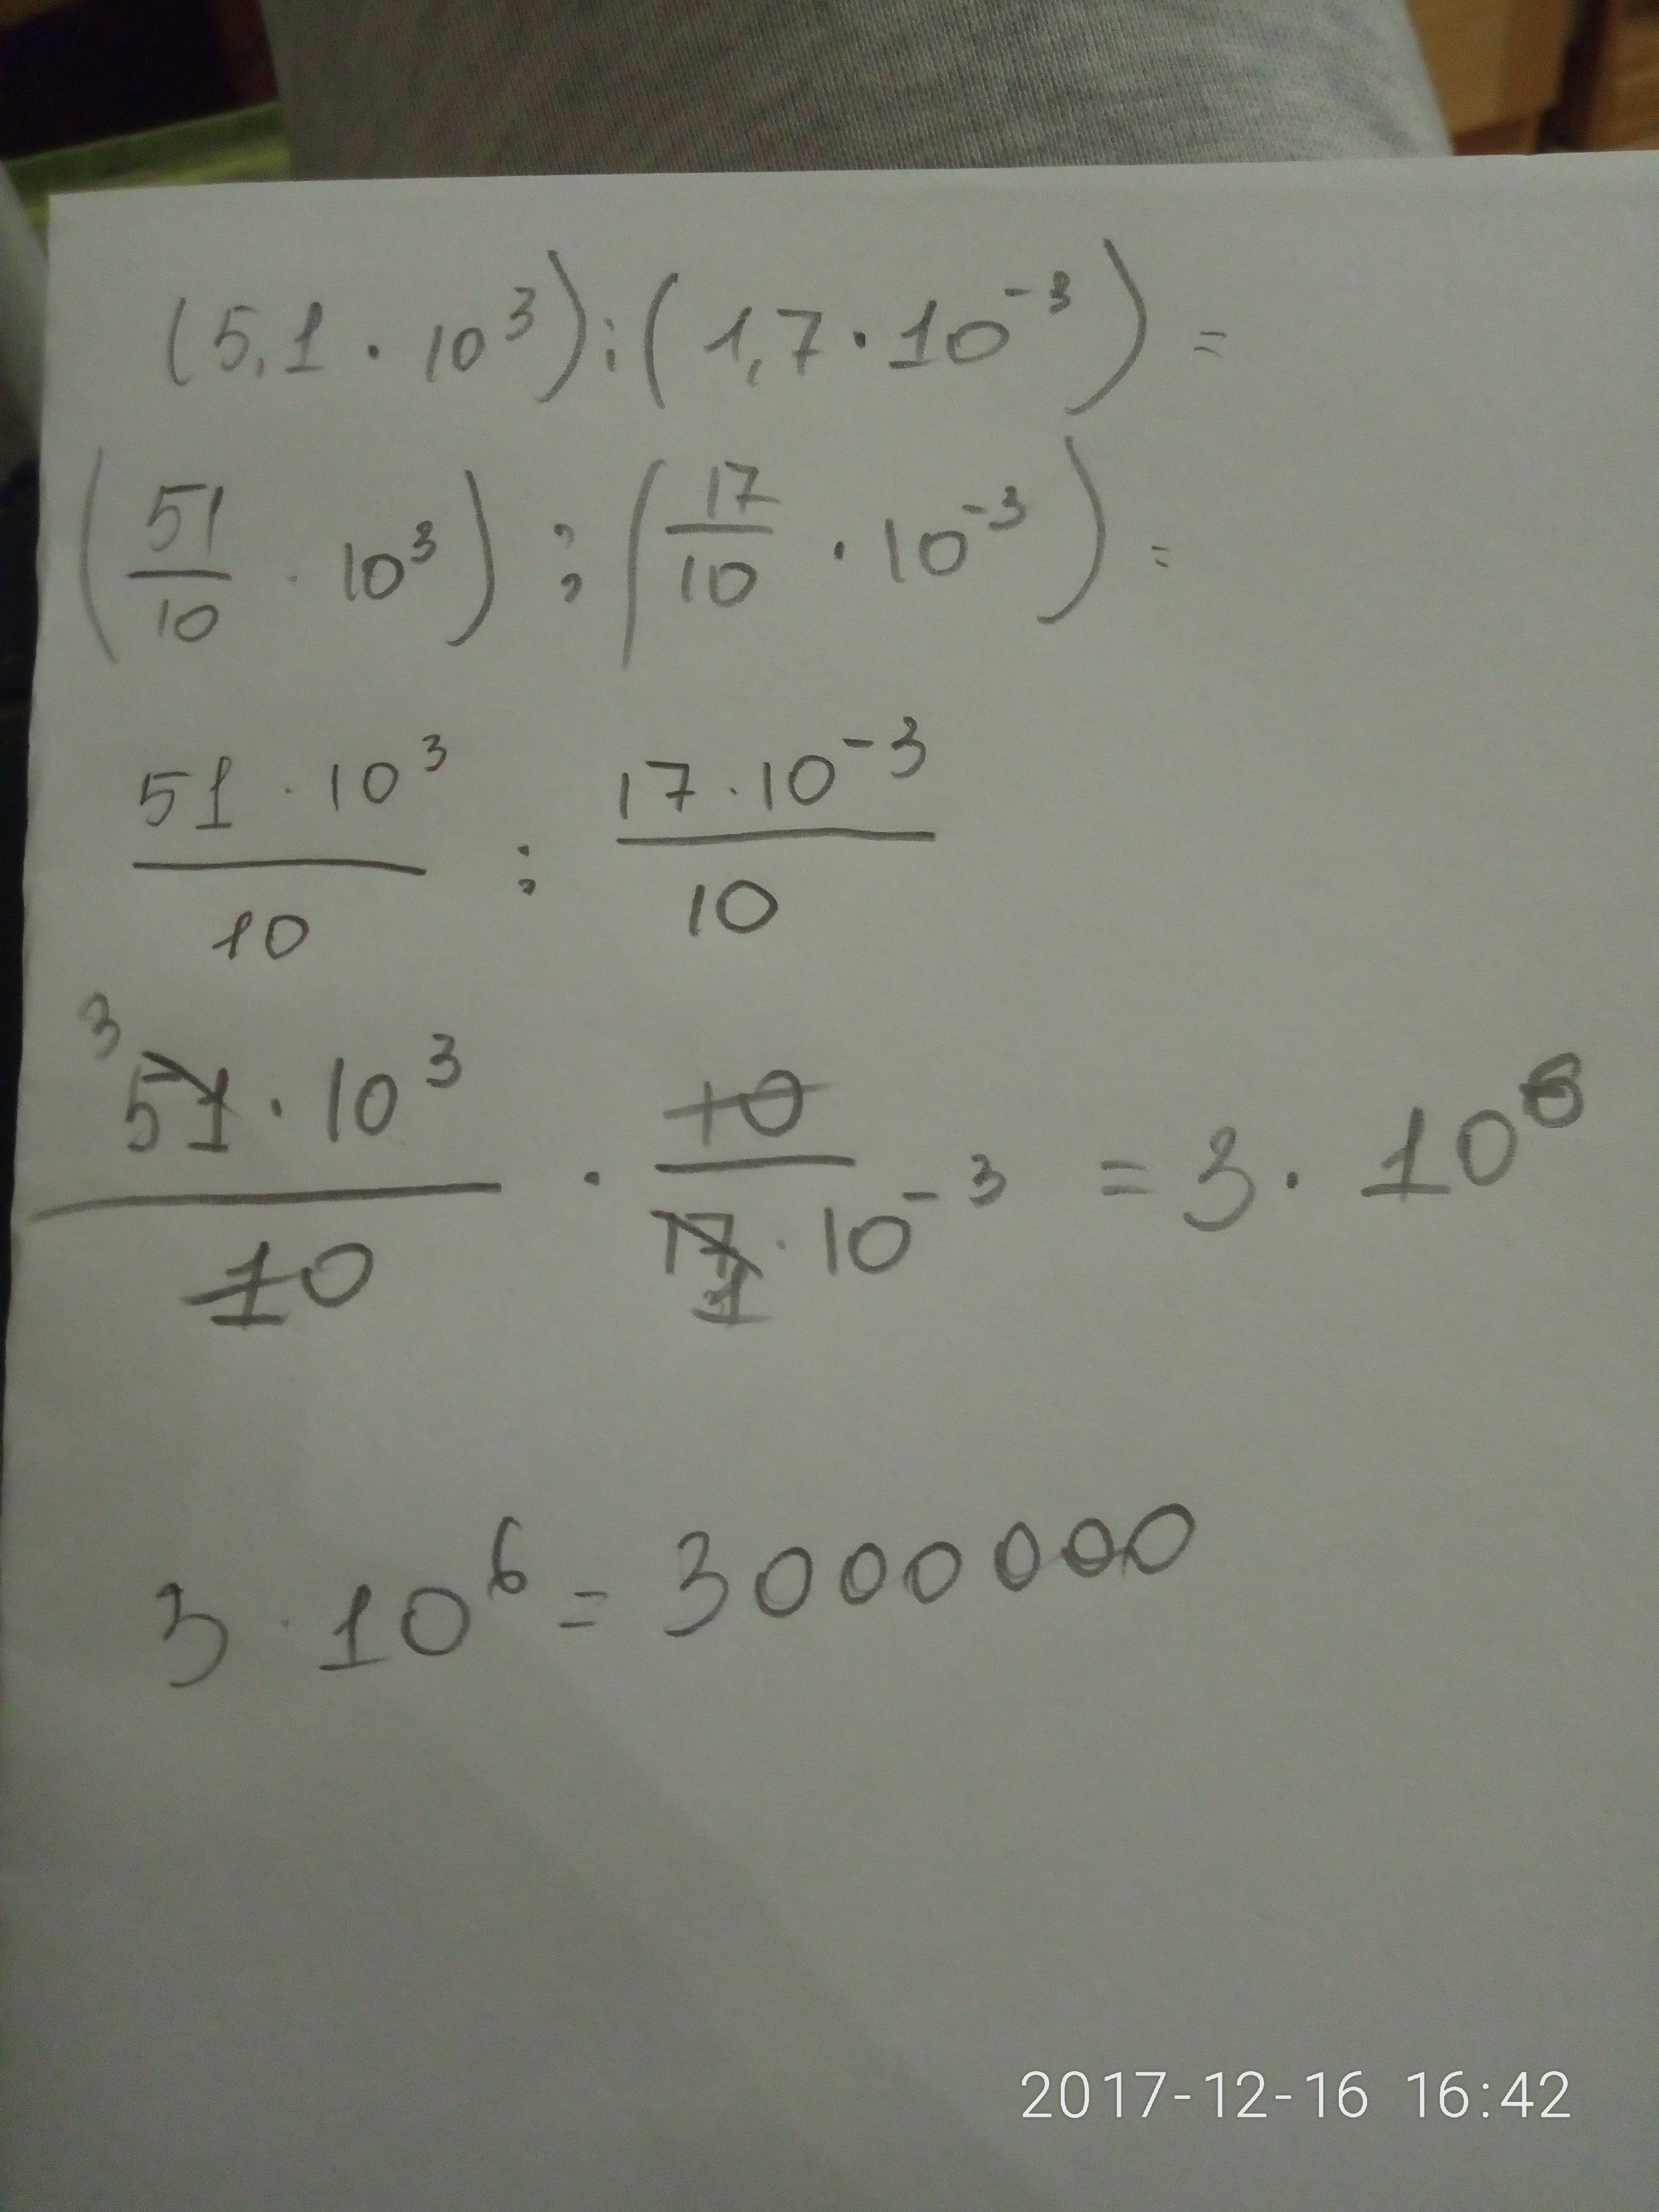 (5,1 · 10³) : (1,7 · 10⁻³) =
(51/10 · 10³) : (17/10 · 10⁻³) =
51 · 10³/10 : 17 · 10⁻³/10
³51 · 10³/10 · 10/17 · 10⁻³ = 3 · 10⁶
1
3 · 10⁶ = 3000000
2017-12-16 16:42